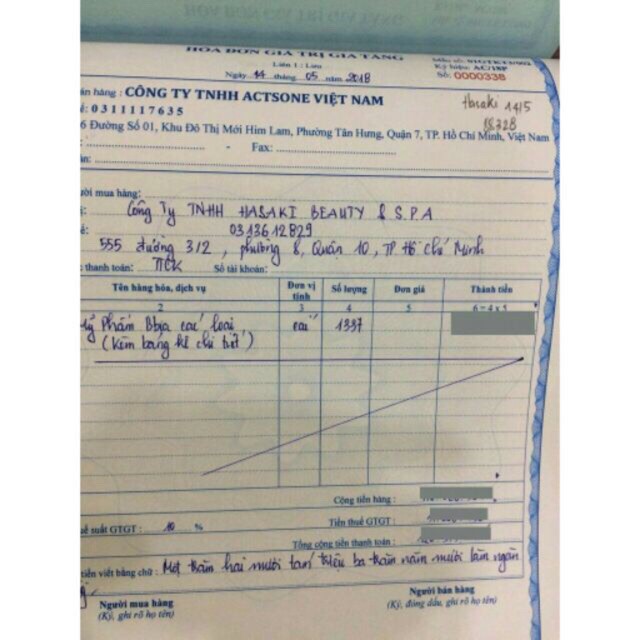 HÓA ĐƠN GIÁ TRỊ GIA TĂNG
Liên 1 : Lưu
Ký hiệu: AC/18P
Ngày 14 tháng 05 năm 2018
Số: 0000338
án hàng : CÔNG TY TNHH ACTSONE VIỆT NAM
Hasaki 14/5
ế: 0311117635
18328
6 Đường Số 01, Khu Đô Thị Mới Him Lam, Phường Tân Hưng, Quận 7, TP. Hồ Chí Minh, Việt Nam
- Fax:
ười mua hàng:
Công Ty TNHH HASAKI BEAUTY & S.P.A
0313612829
555 đường 3/2, phường 8, Quận 10, TP Hồ Chí Minh
thanh toán: TTCK Số tài khoản:
Tên hàng hóa, dịch vụ Đơn vị tính Số lượng Đơn giá Thành tiền
2 3 4 5 6=4x5
Phẩm Bbia các loại cái 1337
(Kèm bảng kê chi tiết)
Cộng tiền hàng :
ế suất GTGT : 10 % Tiền thuế GTGT :
Tổng cộng tiền thanh toán :
tiền viết bằng chữ : Một trăm hai mươi tám triệu ba trăm năm mươi lăm ngàn
Người mua hàng Người bán hàng
(Ký, ghi rõ họ tên) (Ký, đóng dấu, ghi rõ họ tên)